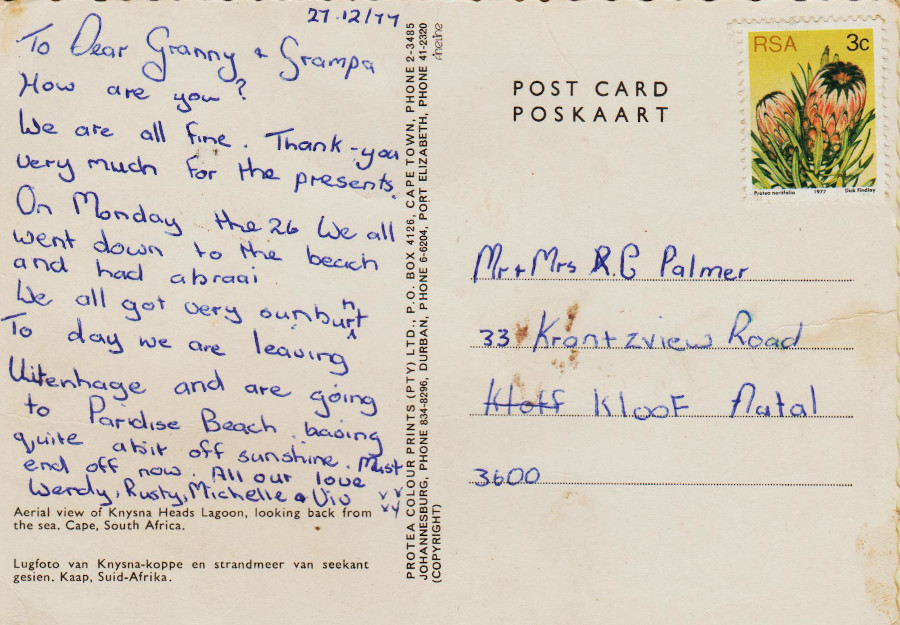 27.12/77
To Dear Granny + Grampa
How are you?
We are all fine. Thank-you
very much for the presents.
On Monday the 26 We all
went down to the beach
and had abraai
We all got very sunburnt
To day we are leaving
Uitenhage and are going
to Paridise Beach. having
quite abit off sunshine. Must
end off now. All our love
Wendy, Rusty, Michelle & Viv
Aerial view of Knysna Heads Lagoon, looking back from
the sea. Cape, South Africa.
Lugfoto van Knysna-koppe en strandmeer van seekant
gesien. Kaap, Suid-Afrika.
PROTEA COLOUR PRINTS (PTY) LTD., P.O. BOX 4126, CAPE TOWN, PHONE 2-3485
JOHANNESBURG, PHONE 834-8296, DURBAN, PHONE 6-6204, PORT ELIZABETH, PHONE 41-2320
(COPYRIGHT)
POST CARD
POSKAART
RSA 3c
Protea neriifolia 1977 Dick Findlay
Mr + Mrs R.G Palmer
33 Krantzview Road
Kloff Kloof Natal
3600